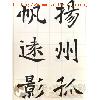 揚州孤
帆遠影